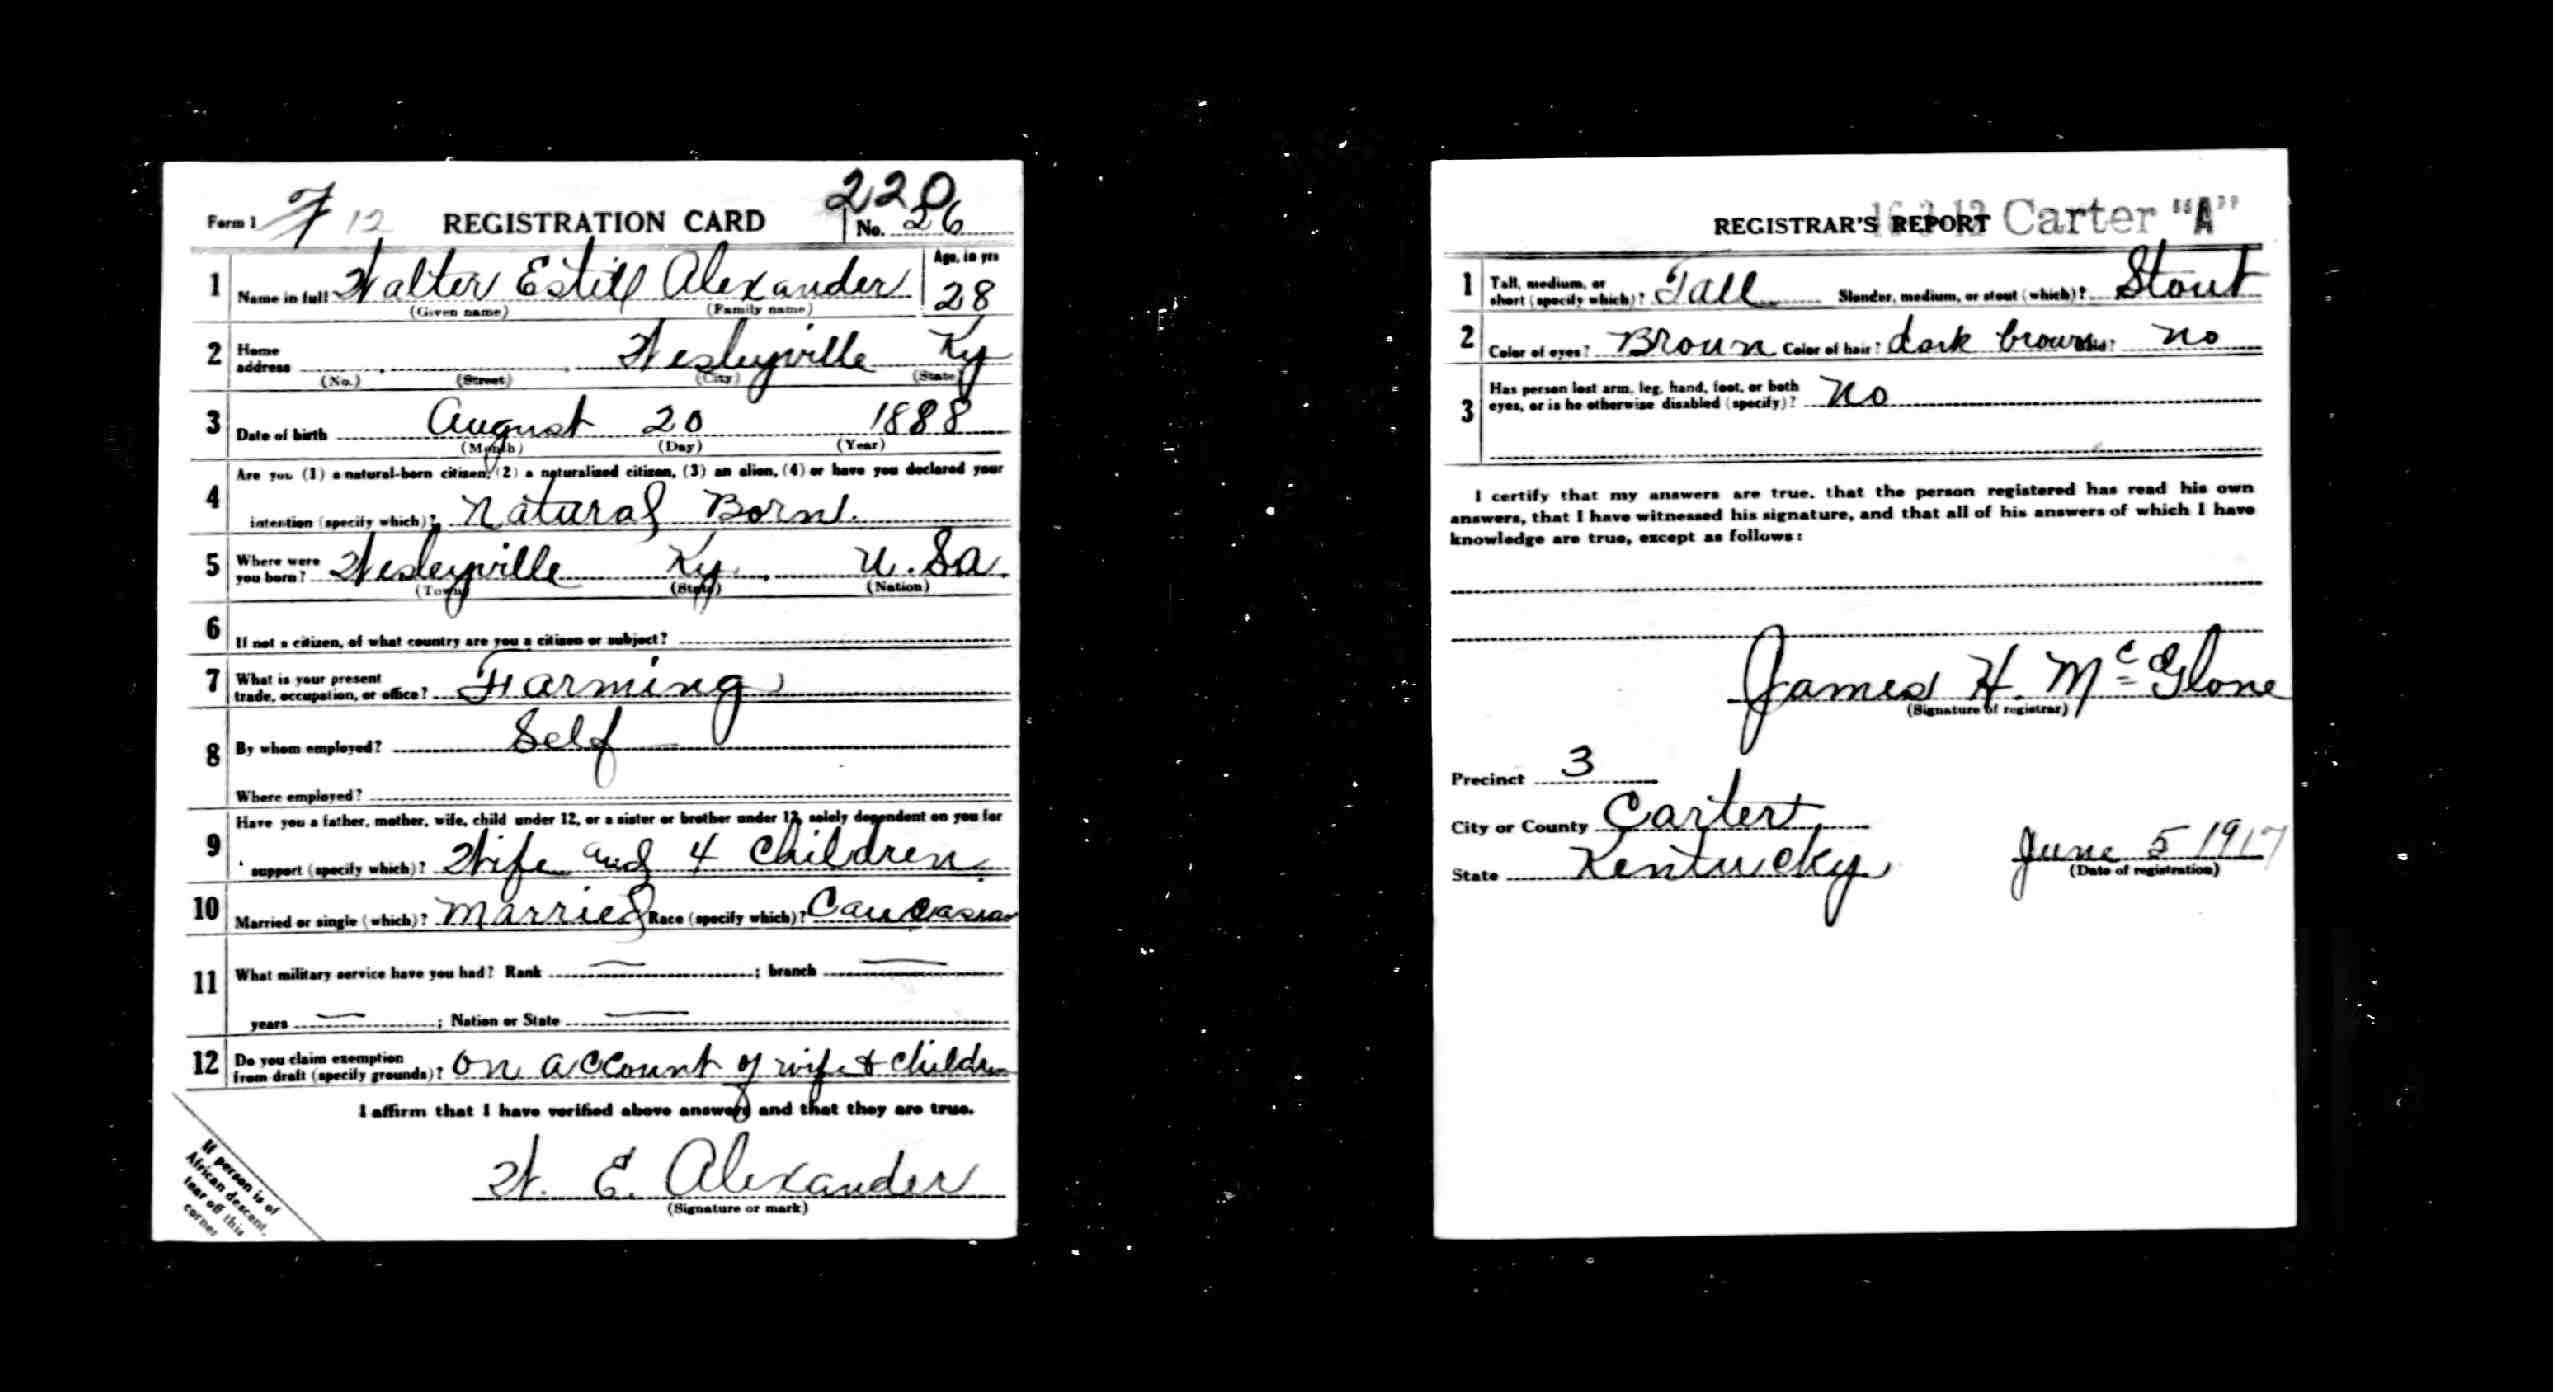 220
Form 1 12 REGISTRATION CARD No. 26
1 Name in full Walter Estill Alexander Age, in yrs 28
(Given name) (Family name)
2 Home address Wesleyville Ky
(No.) (Street) (City) (State)
3 Date of birth August 20 1888
(Month) (Day) (Year)
4 Are you (1) a natural-born citizen, (2) a naturalized citizen, (3) an alien, (4) or have you declared your
intention (specify which)? Natural Born.
5 Where were you born? Wesleyville Ky. U. Sa.
(Town) (State) (Nation)
6 If not a citizen, of what country are you a citizen or subject?
7 What is your present trade, occupation, or office? Farming
8 By whom employed? Self
Where employed?
9 Have you a father, mother, wife, child under 12, or a sister or brother under 12, solely dependent on you for
support (specify which)? Wife and 4 children
10 Married or single (which)? Married Race (specify which)? Caucasian
11 What military service have you had? Rank — ; branch —
years — ; Nation or State —
12 Do you claim exemption from draft (specify grounds)? On account of wife & children
I affirm that I have verified above answers and that they are true.
W. E. Alexander
(Signature or mark)
If person is of
African descent,
tear off this
corner
REGISTRAR'S REPORT Carter "A"
1 Tall, medium, or short (specify which)? Tall Slender, medium, or stout (which)? Stout
2 Color of eyes? Broun Color of hair? dark brown Bald? No
3 Has person lost arm, leg, hand, foot, or both eyes, or is he otherwise disabled (specify)? No
I certify that my answers are true, that the person registered has read his own
answers, that I have witnessed his signature, and that all of his answers of which I have
knowledge are true, except as follows:
James H. McGlone
(Signature of registrar)
Precinct 3
City or County Carter
State Kentucky June 5 1917
(Date of registration)